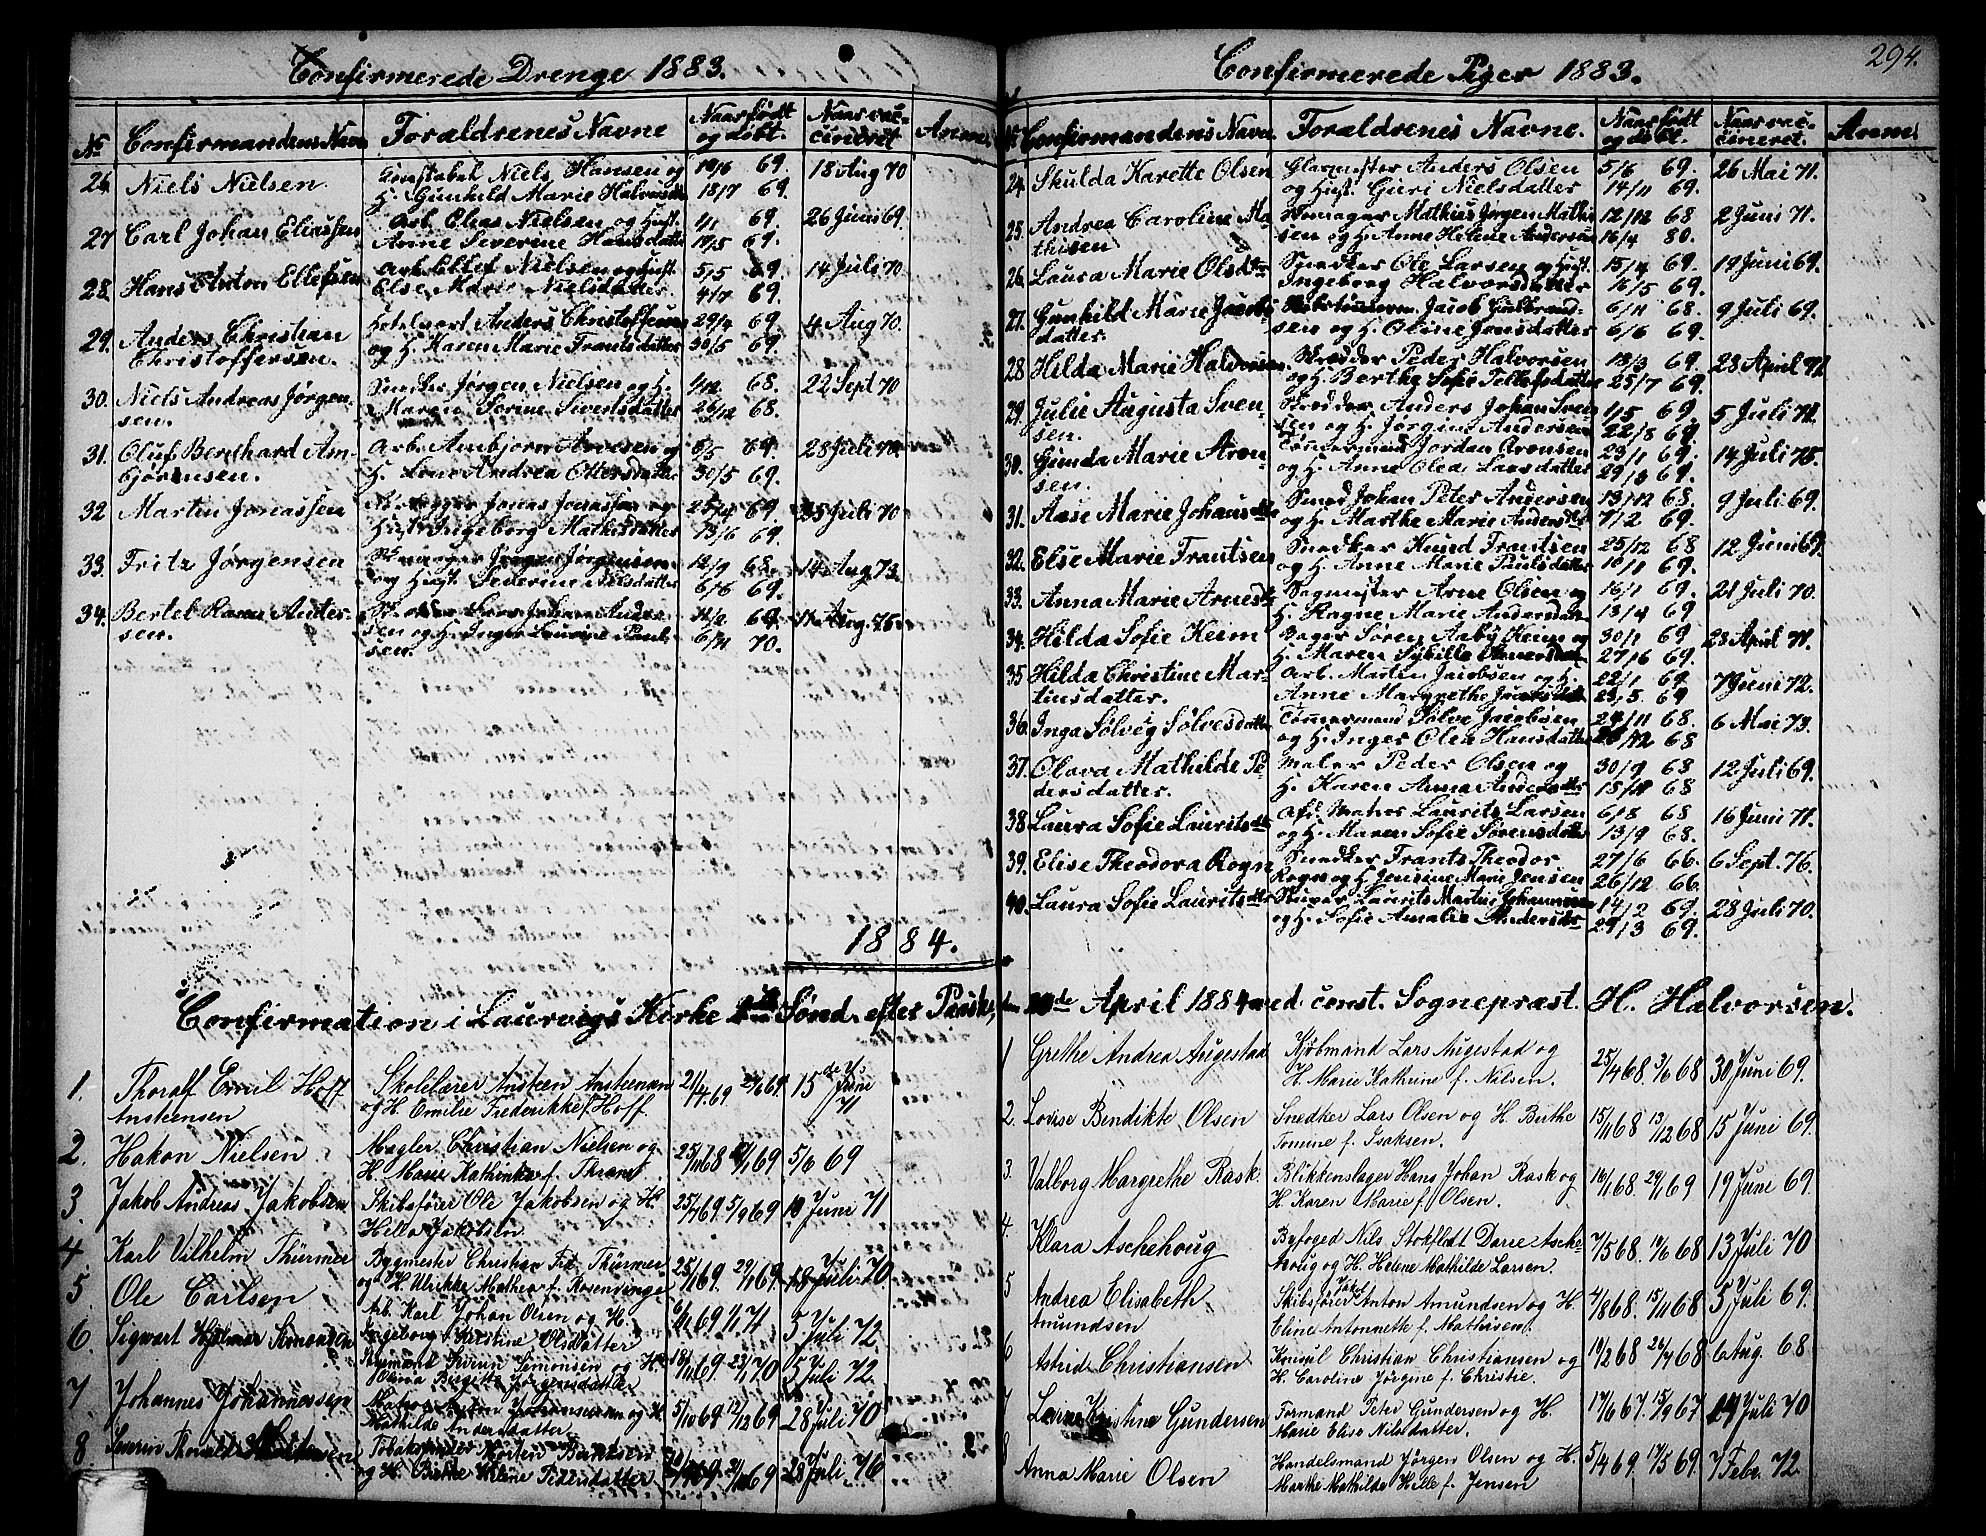 Confirmerede Drenge 1883.
No Confirmandens Navn Forældrenes Navne Naar født og døbt. Naar vaccineret Anm.
26. Niels Nielsen Constabel Niels Hansen og 19/6 69. 18 Aug 70
H. Gunhild Marie Halvorsdatter 18/7 69.
27 Carl Johan Eliassen Arb. Elias Nielsen og Hust. 69. 26 Juni 69.
Anne Severine Hansdatter 19/5 69.
28. Hans Anton Ellefsen Arb. Ellef Nielsen og Hust. 5/5 69. 14 Juli 70
Else Marie Nielsdatter 4/7 69.
29. Anders Christian Hotelvært Anders Christoffersen 29/4 69. 4 Aug 70.
Christoffersen. og H. Karen Marie Frantsdatter 30/5 69.
30. Niels Andreas Jørgen- Snedker Jørgen Nielsen og H. 68. 22 Sept 70
sen. Maren Sorine Sivertsdatter 26/12 68.
31. Oluf Bernhard Am- Arb. Ambjørn Arvesen og 69. 28 Juli 70.
bjørnsen. H. Lene Andrea Ottersdatter 30/5 69.
32 Martin Jonassen Jonas Jonassen og 69 Juli 70
Hust. Ingeborg Mathisdatter 13/6 69.
33. Fritz Jørgensen Jørgen Jørgensen 12/9 68. 14 Aug 73.
og Hust. Sederine Nielsdatter 6/6 69.
34. Bertel Ander- Johan Ander- 69. Aug. 75.
sen. sen og H. Inger Laurine Paul- 6/11 70.
sen.
1884.
Confirmation i Laurvigs Kirke Sønd. efter Paaske,
1. Thoralf Emil Hoff Skolelærer Ansteen Ansteensen 21/4 69. 69. 15 Juni
Ansteensen og H. Emilie Frederikke f. Hoff. 71
2. Hakon Nielsen Mægler Christian Nielsen og 25/11 68 69 5/6 69
H. Kathinka f. Thrane
3. Jakob Andreas Jakobsen Skibsfører Ole Jakobsen og H. 25/7 69. 5/9 69 Juni 71
Hella Jakobsen
4 Karl Vilhelm Thürmer Bygmester Christian Thürmer 25/1 69. 69. 18 Juli 70
og H. Ulrikke Mathea f. Rosenvinge
5. Ole Carlsen Arb. Karl Johan Olsen og H. 69 5 Juli 72
Ingeborg Kirstine Olsdatter
6. Sigwart Hjalmar Simonsen Simonsen og H. 69. 70 5 Juli 72.
Birgitte Jørgensdatter
7 Johannes Johannessen Matros Anton Johannessen og H. 5/10 69 12/12 69 28 Juli 70
Mathilde Andersdatter
8. Severin Morten og H. Birthe Helene 69 28 Juli 76

Confirmerede Piger 1883. 294.
No Confirmandens Navn Forældrenes Navne. Naar født og døbt. Naar vaccineret. Anm.
24. Skulda Karette Olsen Glarmester Anders Olsen 5/6 69. 26 Mai 71.
og Hust. Guri Nielsdatter 14/11 69.
25. Andrea Caroline Ma- Mathius Jørgen Mathi- 12/12 68 2 Juni 71.
thisen sen og H. Anne Helene Andersen 16/4 80.
26. Laura Marie Olsdtr Snedker Ole Larsen og Hust. 15/4 69. 19 Juni 69.
Ingeborg Halvorsdatter 16/5 69.
27. Gunhild Marie Jacobs- Jacob Gulbrand- 6/11 68. 9 Juli 69.
datter. sen og H. Oline Jonsdatter 6/6 69.
28 Hilda Marie Halvorsen Skrædder Peder Halvorsen 18/3 69. 28 April 71.
og H. Berthe Sofie Tellefsdatter 25/7 69.
29. Julie Augusta Sven- Skrædder Anders Johan Sven- 1/5 69. 5 Juli 72.
sen. sen og H. Jørgine Andersen 22/8 69.
30. Gunda Marie Aron- Tømmermand Jordan Aronsen 23/1 69. 14 Juli 75.
sen. og H. Anne Olea Larsdatter 29/3 69.
31. Aase Marie Johansdtr Smed Johan Peter Andersen 13/12 68 9 Juli 69.
og H. Marthe Marie Andersdtr 7/2 69.
32. Else Marie Frantsen Snedker Knud Frantsen 25/12 68 12 Juni 69.
og H. Anne Marie Paulsdatter 10/1 69.
33. Anna Marie Arnesdtr Sagmester Arne Olsen og 16/1 69. 21 Juli 70.
H. Ragne Marie Andersdatter 13/4 69.
34. Hilda Sofie Keim Bager Søren Aaby Keim og 30/1 69. 28 April 71.
H. Maren Sybille 27/6 69.
35 Hilda Christine Mar- Arb. Martin Jacobsen og H. 22/1 69. 7 Juni 72.
tinsdatter. Anne Margrethe 23/5 69.
36. Inga Sølvig Sølvesdatter Tømermand Sølve Jacobsen 24/11 68. 6 Mai 73.
og H. Inger Olea Hansdatter 26/12 68
37. Olava Mathilde Pe- Maler Peder Olsen og 30/9 68 12 Juli 69.
dersdatter. H. Karen Anna Andersdtr 68.
38 Laura Sofie Lauritsdtr Afd. Matros Laurits Larsen 6/8 68 16 Juni 71.
og H. Maren Sofie Sørensdatter 13/9 68.
39. Elise Theodora Rogn Snedker Frants Theodor 27/6 66. 6 Sept. 76.
Rogn og H. Jensine Marie Jensen 26/12 66.
40. Laura Sofie Lauritsdtr Laurits Martin Johannesen 14/2 69. 28 Juli 70.
og H. Sofie Amalie Andersdtr 29/3 69.
den 20de April 1884 ved const. Sognepræst. H. Halvorsen.
1 Grethe Andrea Augestad Kjøbmand Lars Augestad og 25/4 68. 3/6 68 30 Juni 69.
H. Marie Kathrine f. Nilsen.
2. Lovise Bendikte Olsen Snedker Lars Olsen og H. Birthe 15/11 68 13/12 68 15 Juni 69.
Tomine f. Isaksen.
3. Valborg Margrethe Rask. Blikkenslager Hans Johan Rask og 16/11 68. 24/1 69 19 Juni 69.
H. Karen Marie f. Olsen.
4. Klara Aschehoug Byfoged Nils Stokfledt Darre Asche- 7/5 68. 14/6 68 13 Juli 70
houg og H. Helene Mathilde Larsen.
5 Andrea Elisabeth Skibsfører Jakob Anton Amundsen og H. 4/8 68. 15/11 68 5 Juli 69.
Amundsen Eline Antonette f. Mathisen.
6 Astrid Christiansen Konsul Christian Christiansen og 14/2 68 26/7 68 6 Aug. 68
H. Caroline Jørgine f. Christie.
7 Kristine Gundersen Formand Peter Gundersen og H. 17/6 67. 15/9 67 Juli 70
Marie Elise Nilsdatter.
8 Anna Marie Olsen Handelsmand Jørgen Olsen og H. 5/4 69. 17/5 69. 7 Febr. 72
Marthe Mathilde Helle f. Jensen